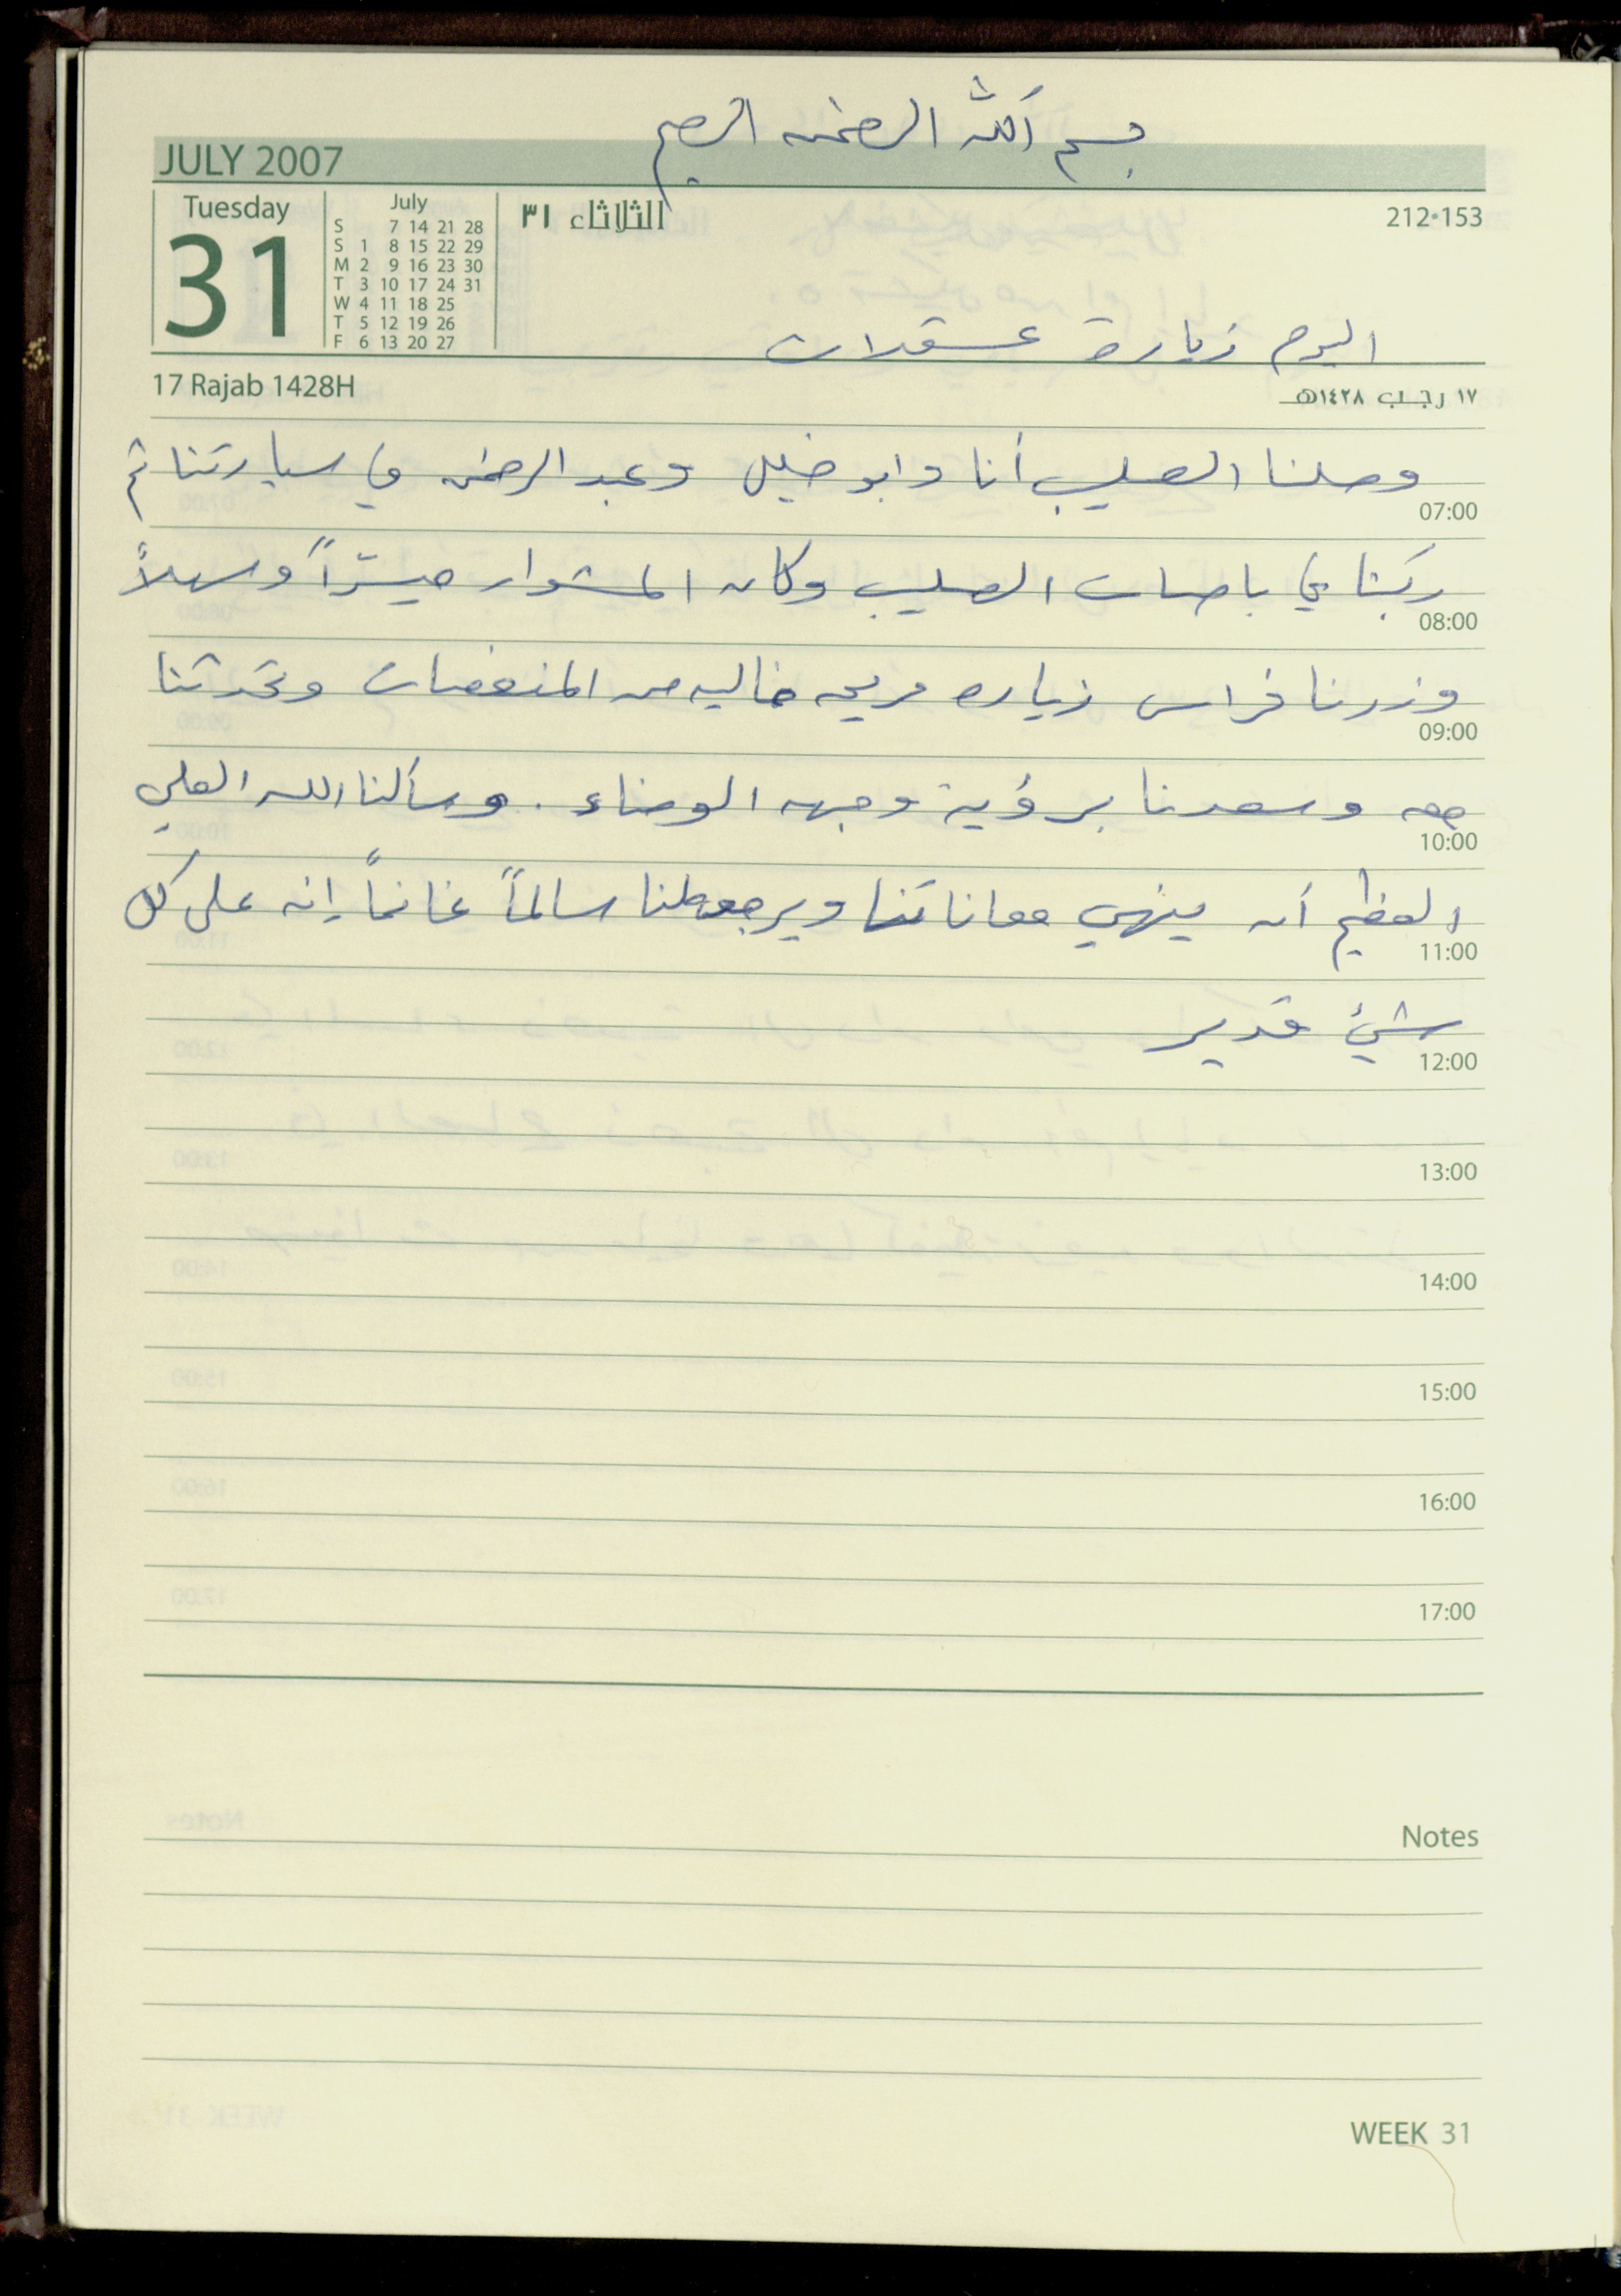 بسم الله الرحمن الرحيم
JULY 2007
Tuesday
31
July
S 7 14 21 28
S 1 8 15 22 29
M 2 9 16 23 30
T 3 10 17 24 31
W 4 11 18 25
T 5 12 19 26
F 6 13 20 27
الثلاثاء ٣١
212•153
اليوم زيارة عسقلان
17 Rajab 1428H
١٧ رجب ١٤٢٨هـ
وصلنا الصليب أنا وابو خليل وعبد الرحمن في سيارتنا ثم
07:00
ركبنا في باصات الصليب وكان المشوار ميسّراً وسهلاً
08:00
وزرنا فراس زياره مريحه خاليه من المنغصات وتحدثنا
09:00
معه وسعدنا برؤية وجهه الوضاء . وسألنا الله العلي
10:00
العظيم أن ينهي معاناتنا ويرجعه لنا سالماً غانماً إنه على كل
11:00
شيئ قدير
12:00
13:00
14:00
15:00
16:00
17:00
Notes
WEEK 31